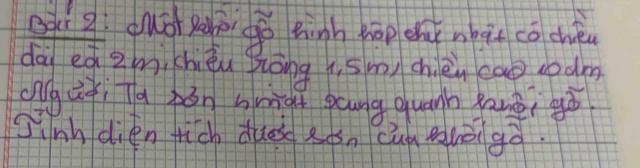 Bài 2: Một khối gỗ hình hộp chữ nhật có chiều
dài là 2m, chiều rộng 1,5m, chiều cao 10dm.
Người Ta sơn mặt xung quanh khối gỗ.
Tính diện tích được sơn của khối gỗ.